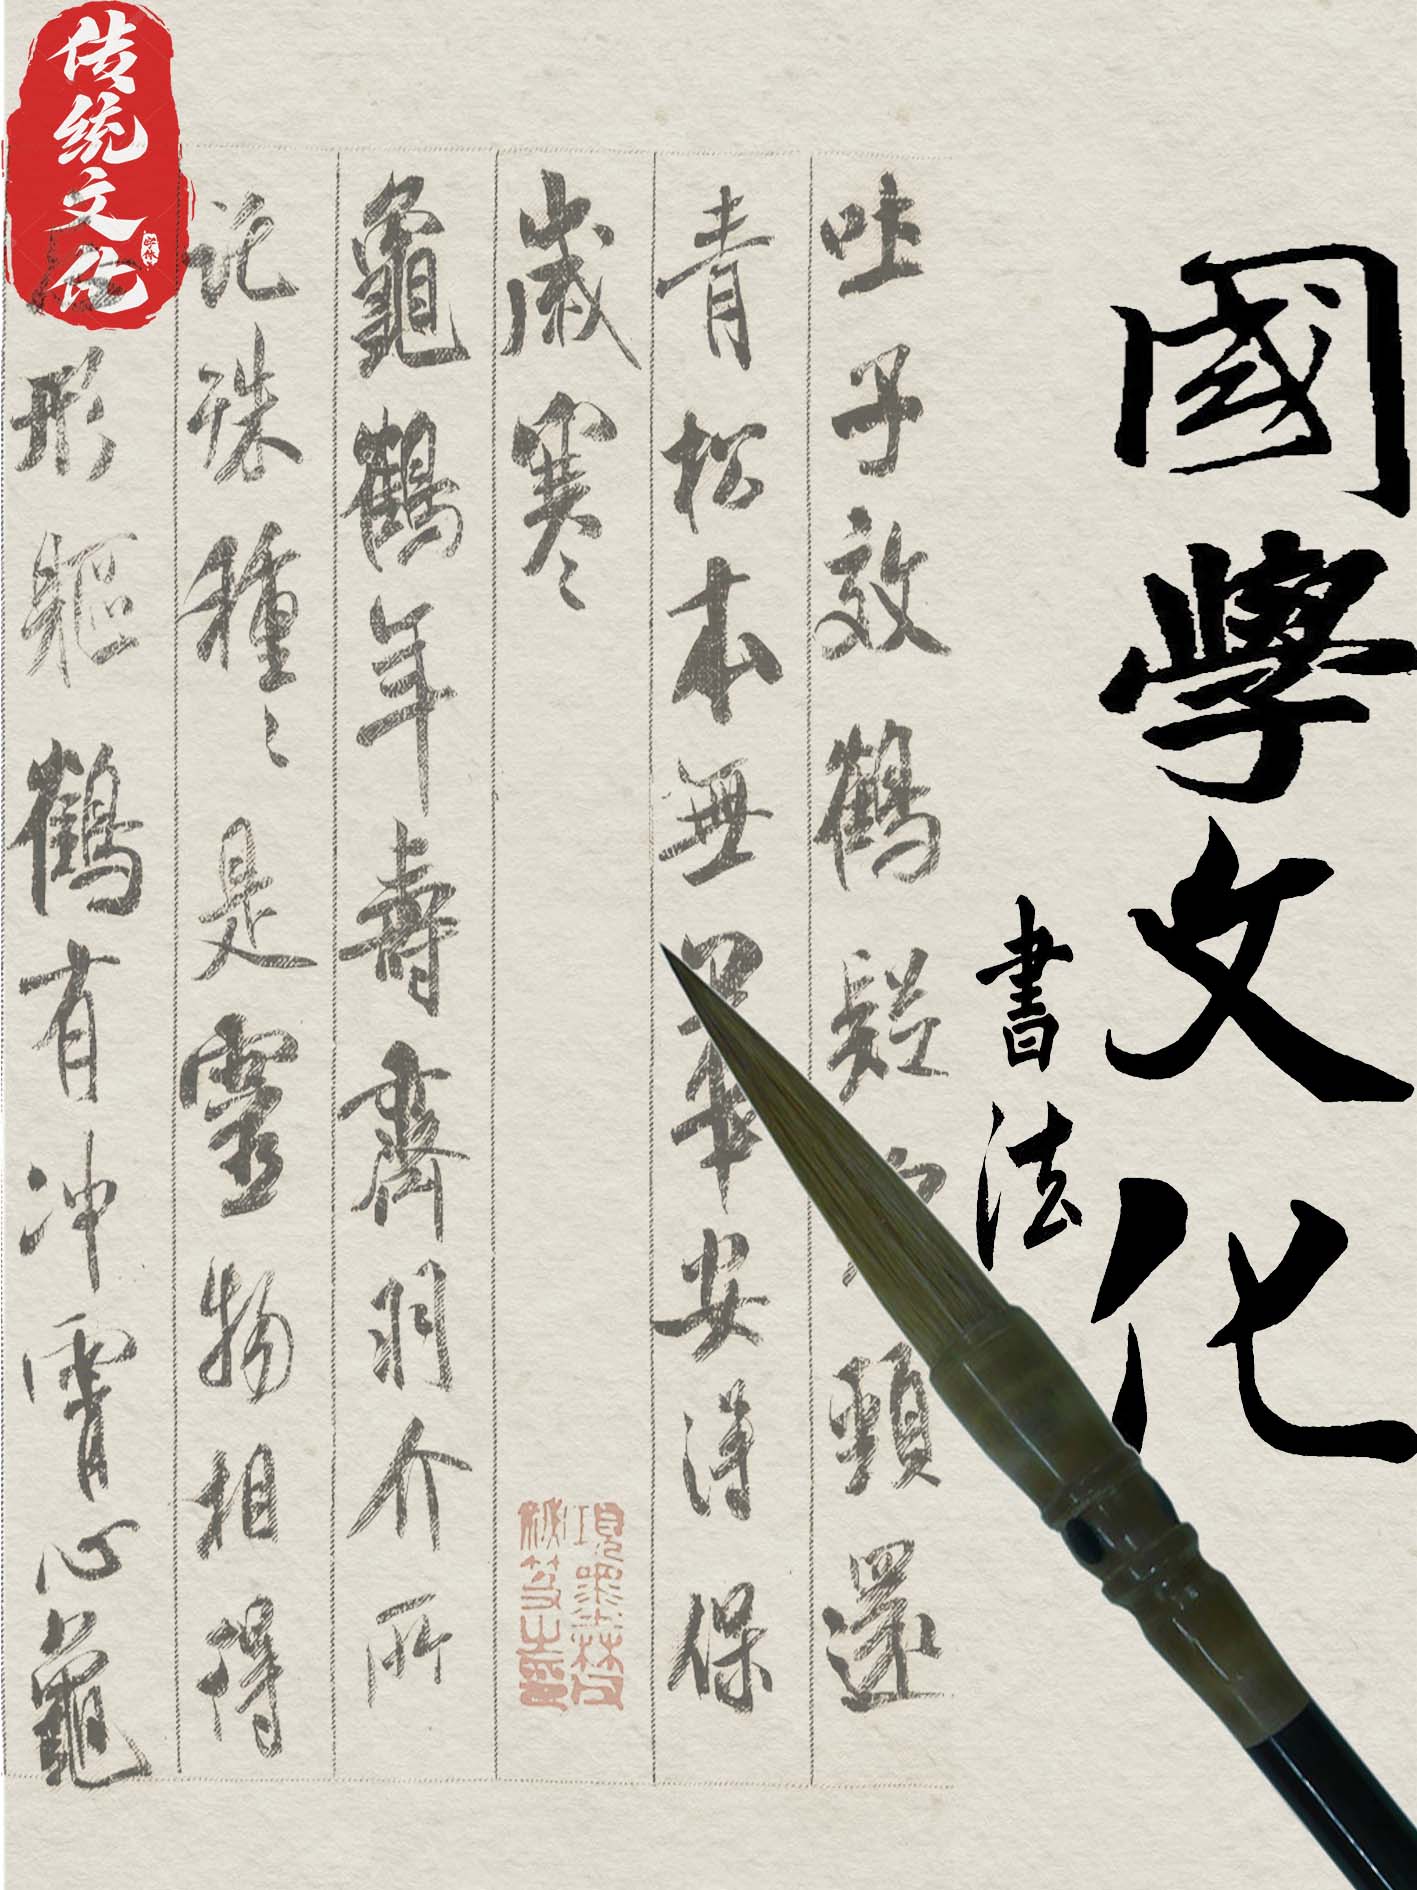 國學文化
書法
吐子效鶴疑頸還
青松本無華安得保
歲寒
龜鶴年壽齊羽介所
託殊種〻是靈物相得
形軀鶴有沖霄心龜
项墨林父
秘笈之印
传统文化